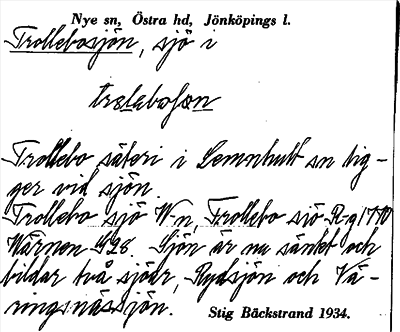 Nye sn, Östra hd, Jönköpings l.
Trollebosjön, sjö i
trolebosøn
Trollebo säteri i Lemnhult sn lig-
ger vid sjön.
Trollebo sjö W-n, Trollebo sjö R-g 1770
Wärnen 428 Sjön är nu sänkt och
bildar två sjöar, Rydsjön och Vä-
ringsnässjön.
Stig Bäckstrand 1934.